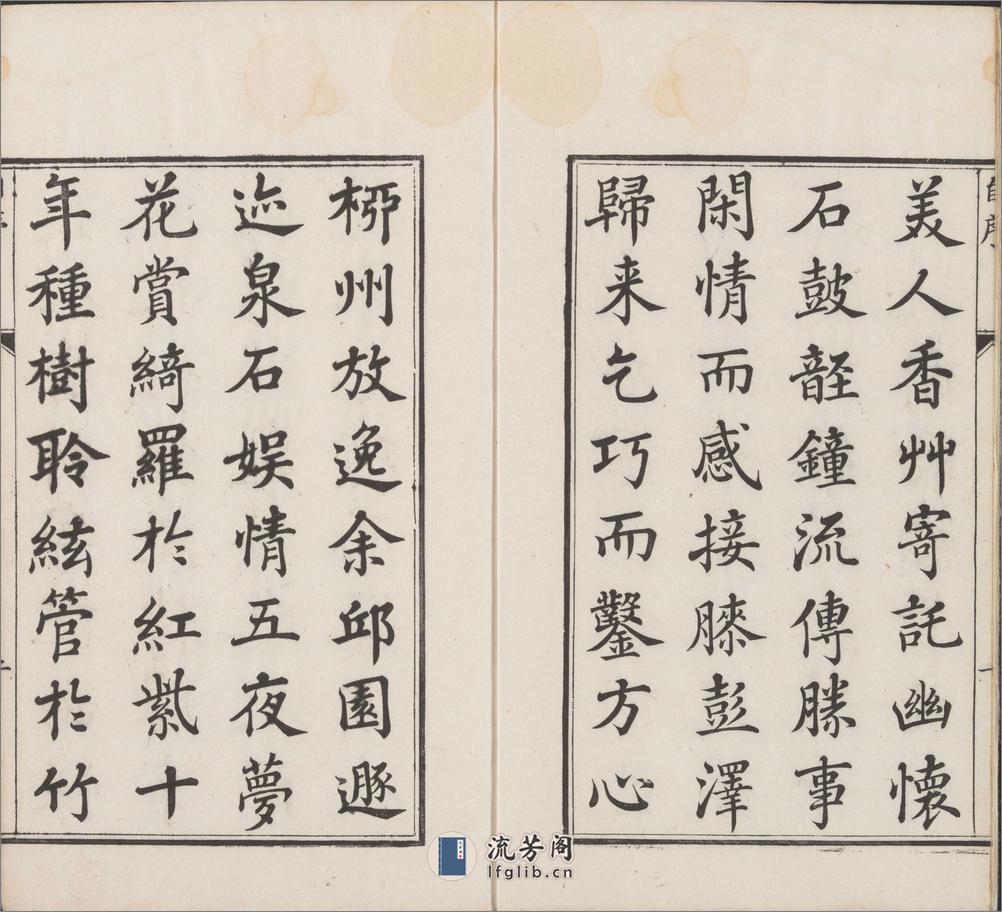 自序
美人香艸寄託幽懷
石鼓𨌲鐘流傳勝事
閑情而感接膝彭澤
歸来乞巧而鑿方心
栁州放逸余邱園遯
迹泉石娱情五夜夢
花賞綺羅於紅紫十
年種樹聆絃管於竹
流芳阁
lfglib.cn